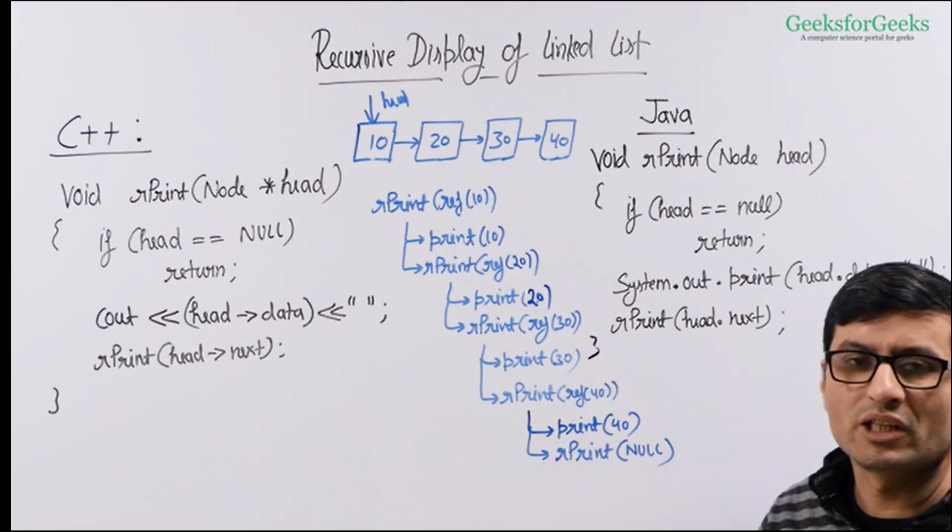 GeeksforGeeks
A computer science portal for geeks
Recursive Display of Linked List
C++ :
void rPrint(Node *head)
{
if (head == NULL)
return;
cout <<(head->data)<<" ";
rPrint(head->next);
}
head
10 20 30 40
rPrint(ref(10))
print(10)
rPrint(ref(20))
print(20)
rPrint(ref(30))
print(30)
rPrint(ref(40))
print(40)
rPrint(NULL)
Java
void rPrint(Node head)
{
if (head == null)
return;
System.out.print(head.data
rPrint(head.next);
}